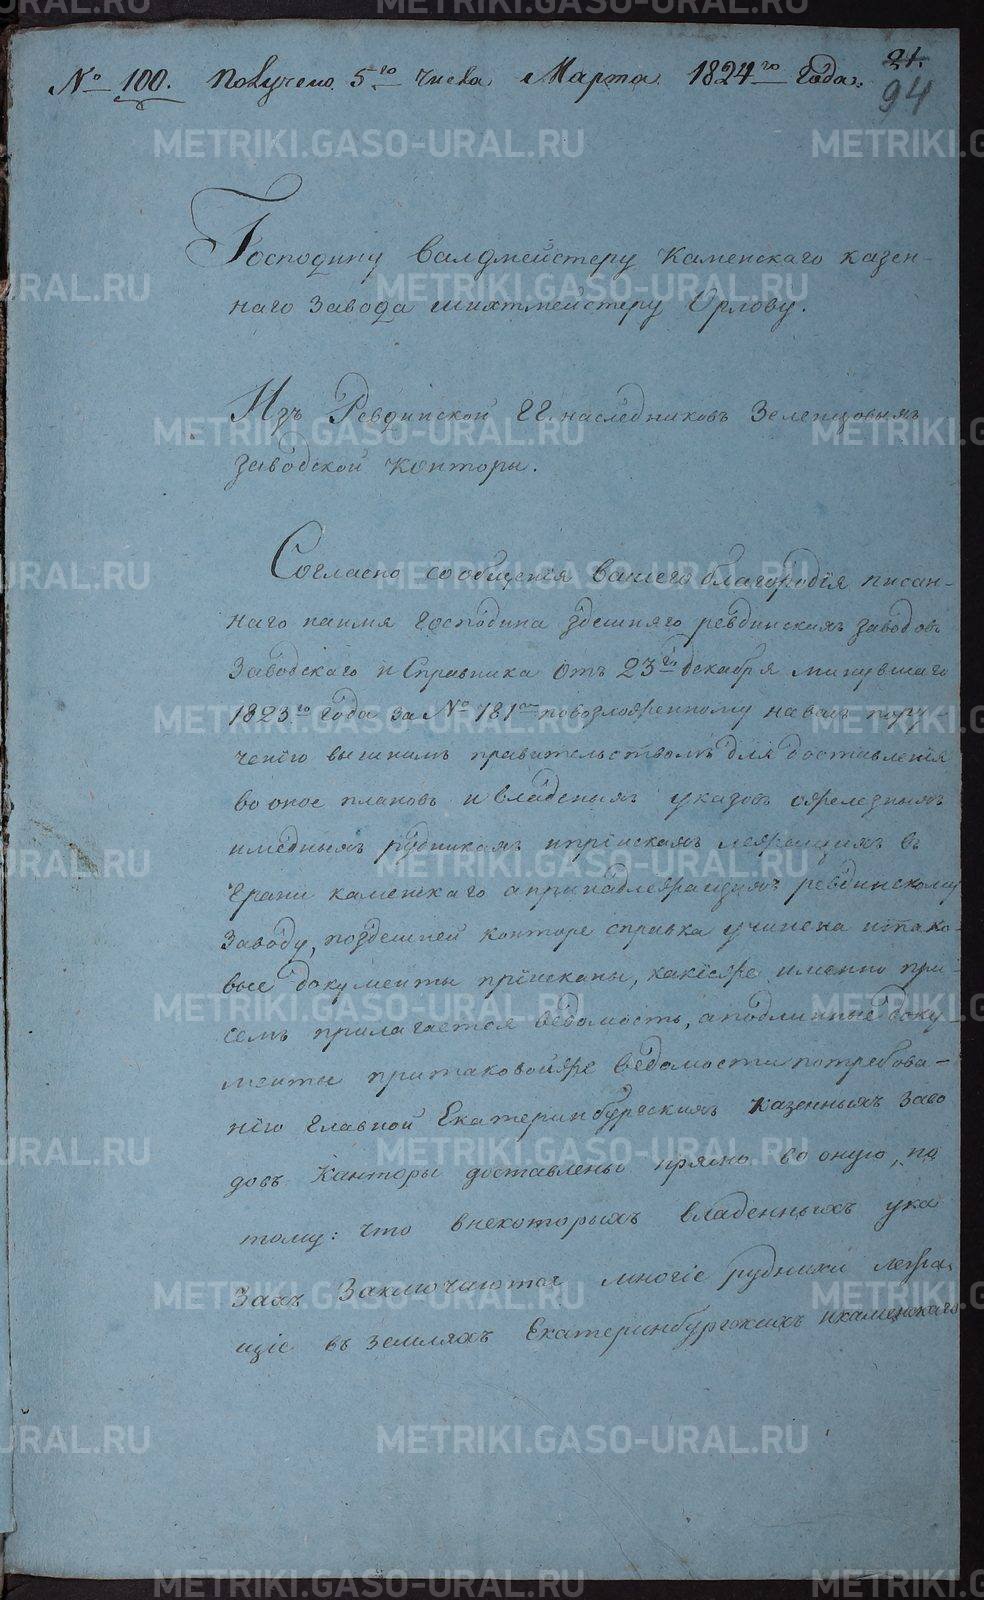 21.
94
№ 100. Получено 5го числа Марта 1824го года.
Господину валдмейстеру Каменскаго казен-
наго завода шихтмейстеру Орлову.
Изъ Ревдинской ГГ. наследниковъ Зеленцовыхъ
заводской конторы.
Согласно сообщенія вашего благородія писан-
наго наимя господина здешняго ревдинскихъ заводовъ
Заводскаго исправника отъ 23го декабря минувшаго
1823го года за № 781м повозложенному навасъ пору-
ченію вышнимъ правительствомъ для доставленія
во оное плановъ и владеныхъ указовъ ожелезныхъ
имедныхъ рудникахъ ипріискахъ лежащихъ въ
грани каменскаго апринадлежащихъ ревдинскому
Заводу, поздешней конторе справка учинена итако-
вые документы пріисканы, какіяже именно при
семъ прилагается ведомость, аподлинные доку
менты притаковойже ведомости потребова-
нію главной Екатеринбургскихъ казенныхъ заво
довъ Канторы доставлены прямо во оную, по
тому: что внекоторыхъ владенныхъ ука
захъ Заключаются многіе рудники лежа
щіе въ земляхъ Екатеринбургскихъ икаменскаго
METRIKI.GASO-URAL.RU